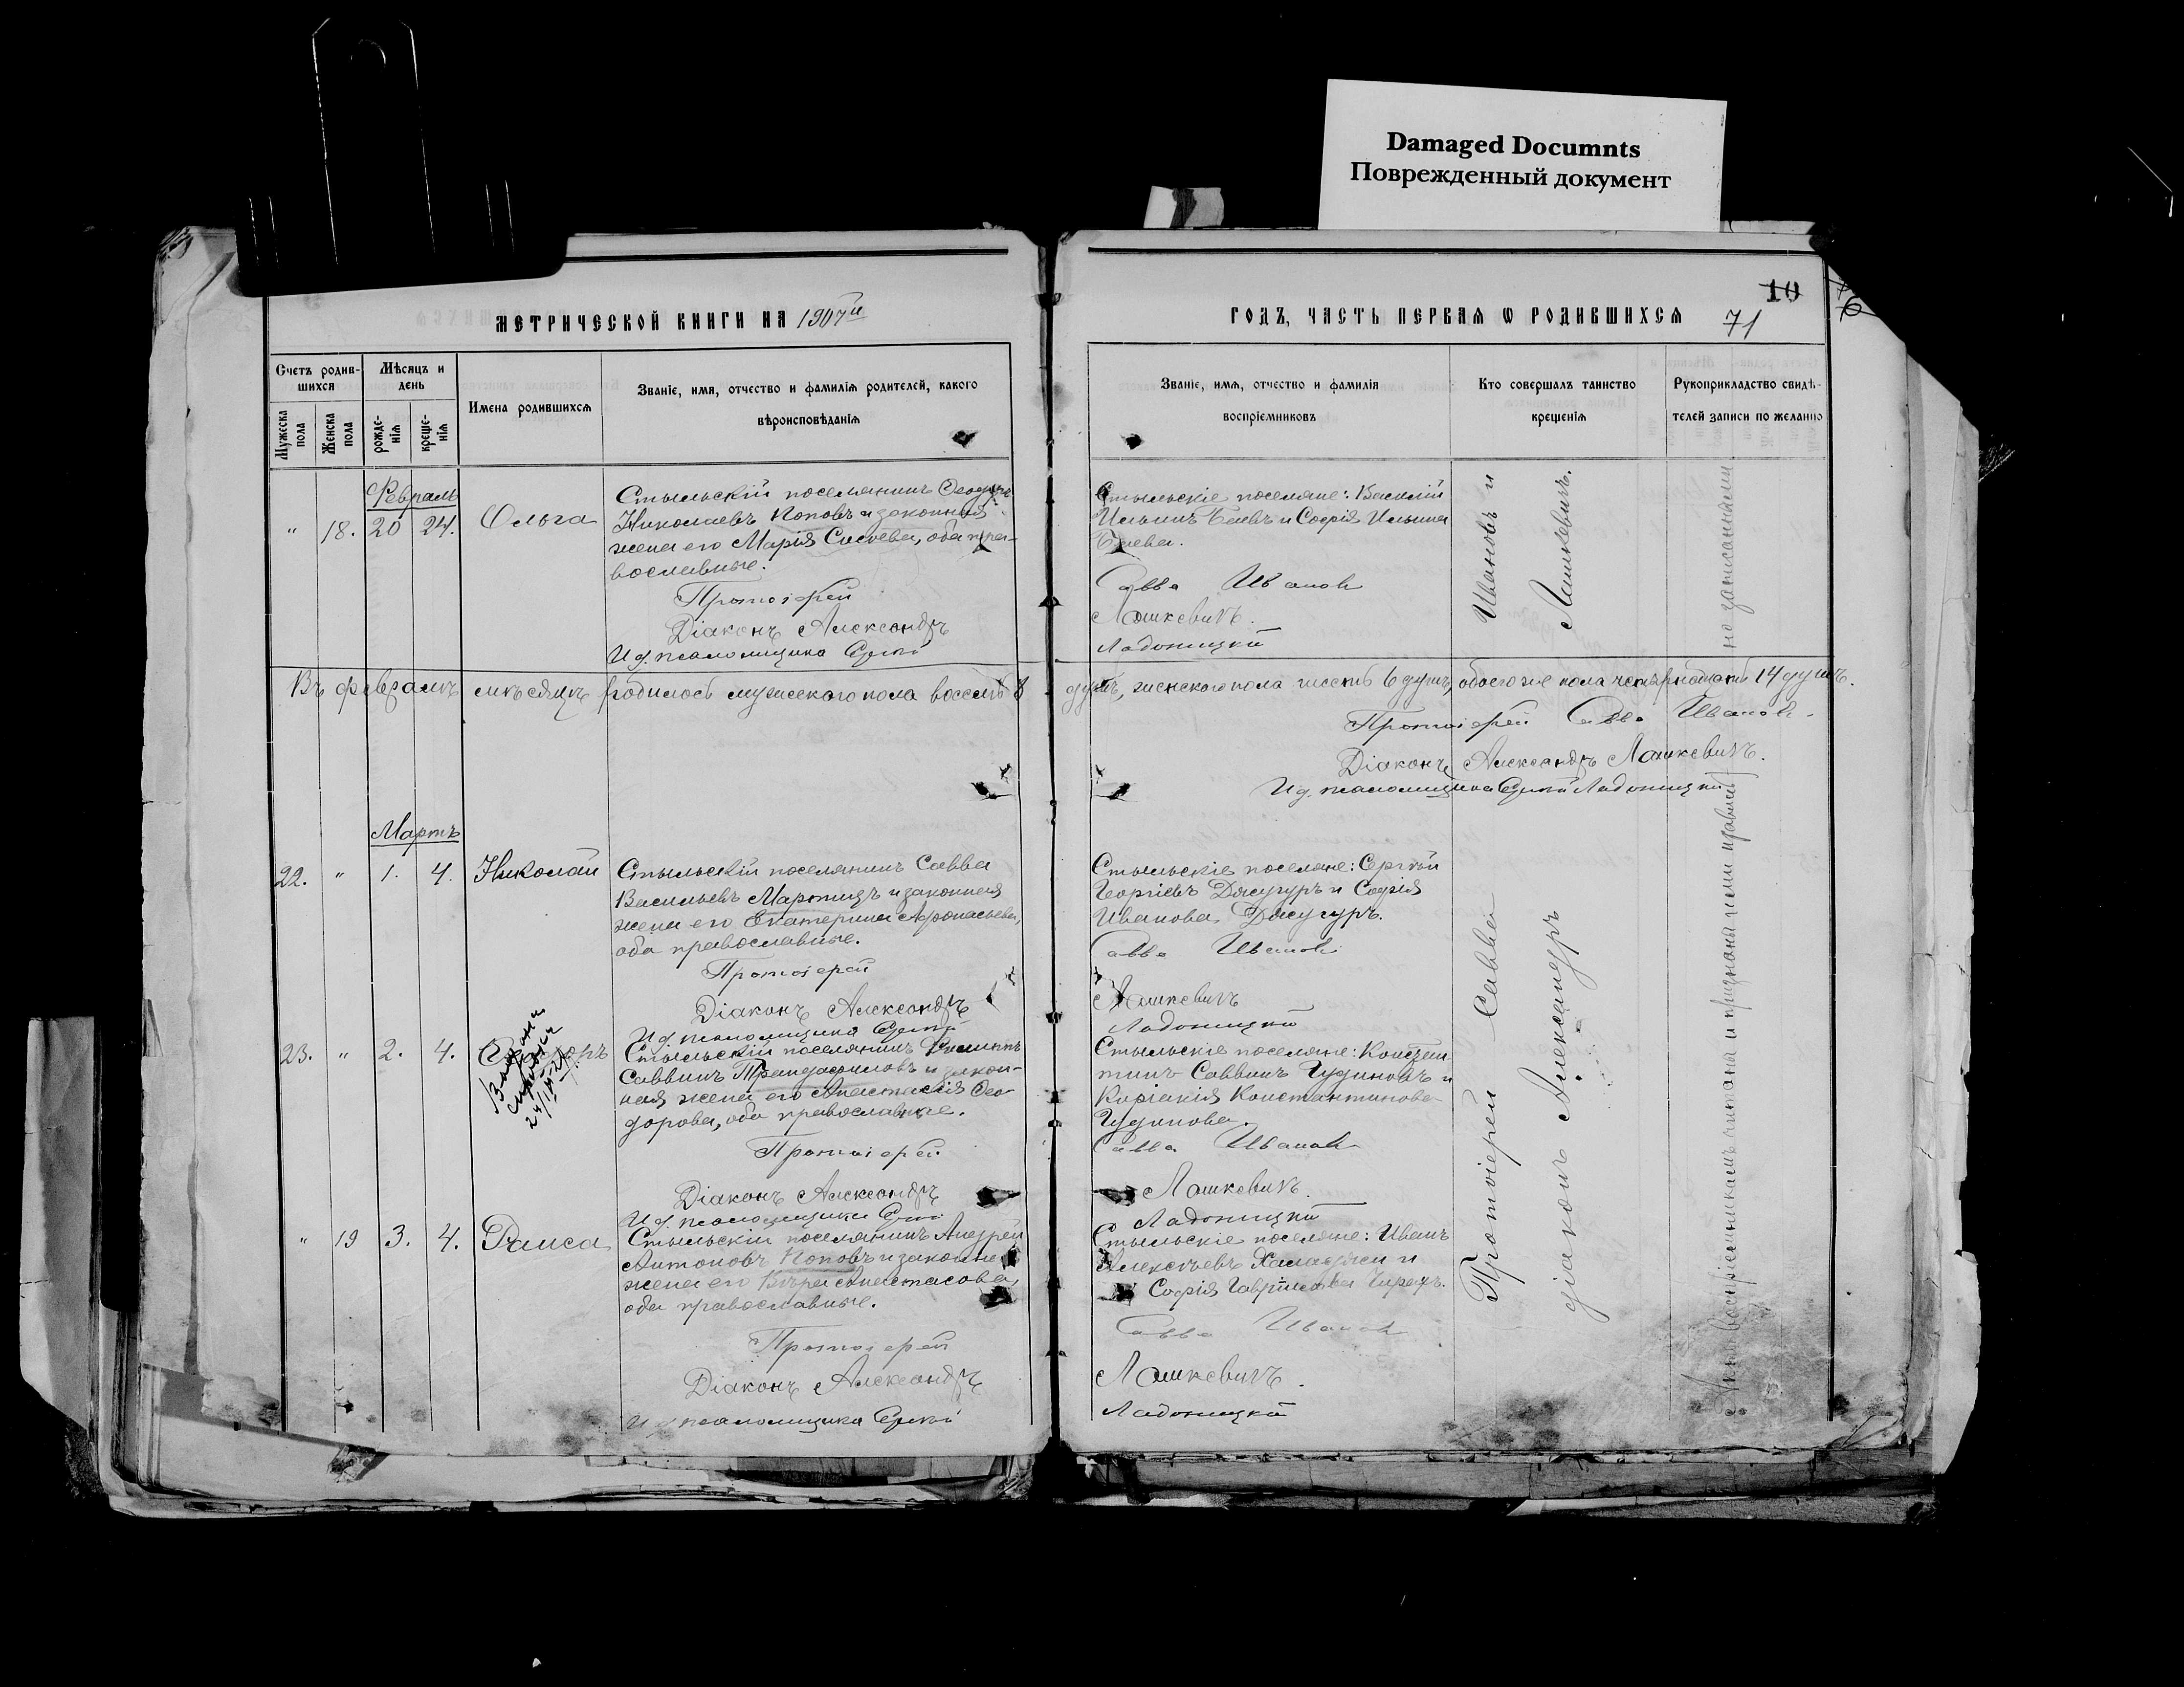 Damaged Documnts
Поврежденный документ
10
71
МЕТРИЧЕСКОЙ КНИГИ НА 1907й
ГОДЪ, ЧАСТЬ ПЕРВАЯ Ѡ РОДИВШИХСЯ
Счетъ родив-
шихся
Мужеска
пола
Женска
пола
Мѣсяцъ и
день
рожде-
нія
креще-
нія
Имена родившихся
Званіе, имя, отчество и фамилія родителей, какого
вѣроисповѣданія
Званіе, имя, отчество и фамилія
воспріемниковъ
Кто совершалъ таинство
крещенія
Рукоприкладство свидѣ-
телей записи по желанію
Февраль
" 18. 20 24. Ольга
Стыльскій поселянинъ Ѳеодоръ
Николаевъ Поповъ и законная
жена его Марія Сысоева, оба пра-
вославные.
Протоіерей
Діаконъ Александръ
И д. псаломщика
Стыльскіе поселяне: Василій
Ильинъ Баевъ и Софія Ильина
Баева.
Савва Ивановъ
Лашкевичъ.
Ладоницкій
Въ февралѣ мѣсяцѣ родилось мужескаго пола восемь 8
душъ, женскаго пола шесть 6 душъ, обоего же пола четырнадцать 14 душъ.
Протоіерей Савва Ивановъ
Діаконъ Александръ Лашкевичъ.
И д. псаломщика Ладоницкій
Мартъ
22. " 1. 4. Николай
Стыльскій поселянинъ Савва
Васильевъ Мартицъ и законная
жена его Екатерина Афонасьева,
оба православные.
Протоіерей
Діаконъ Александръ
И д. псаломщика
Стыльскіе поселяне: Сергѣй
Георгіевъ Джугуръ и Софія
Иванова Джугуръ.
Савва Ивановъ
Лашкевичъ
Ладоницкій
23. " 2. 4.
Стыльскій поселянинъ Филиппъ
Саввинъ Трандафиловъ и закон-
ная жена его Анастасія Ѳео-
дорова, оба православные.
Протоіерей
Діаконъ Александръ
И д. псаломщика
Стыльскіе поселяне: Констан-
тинъ Саввинъ Чудиновъ и
Киріакія Константинова
Чудинова.
Савва Ивановъ
Лашкевичъ.
Ладоницкій
" 19 3. 4. Раиса
Стыльскій поселянинъ Андрей
Антоновъ Поповъ и законная
жена его Вѣра Анастасова,
оба православные.
Протоіерей
Діаконъ Александръ
И д. псаломщика
Стыльскіе поселяне: Иванъ
Алексѣевъ Халаджи и
Софія Гаврилова
Савва Ивановъ
Лашкевичъ.
Ладоницкій
Протоіерей Савва Ивановъ и
діаконъ Александръ Лашкевичъ.